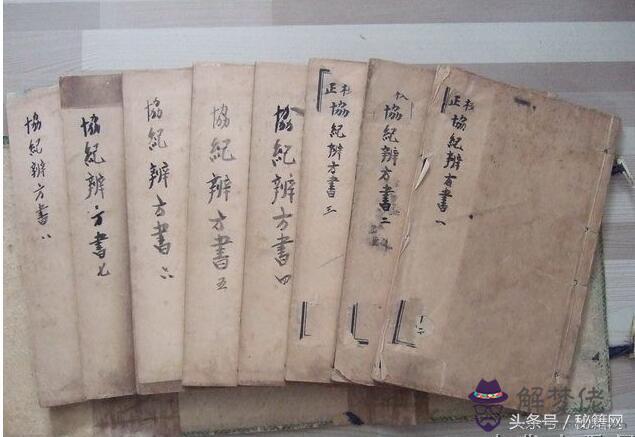 協紀辨方書一
協紀辨方書二
協紀辨方書三
協紀辨方書四
協紀辨方書五
協紀辨方書六
協紀辨方書七
協紀辨方書八
解梦佬
头条号 / 秘籍网